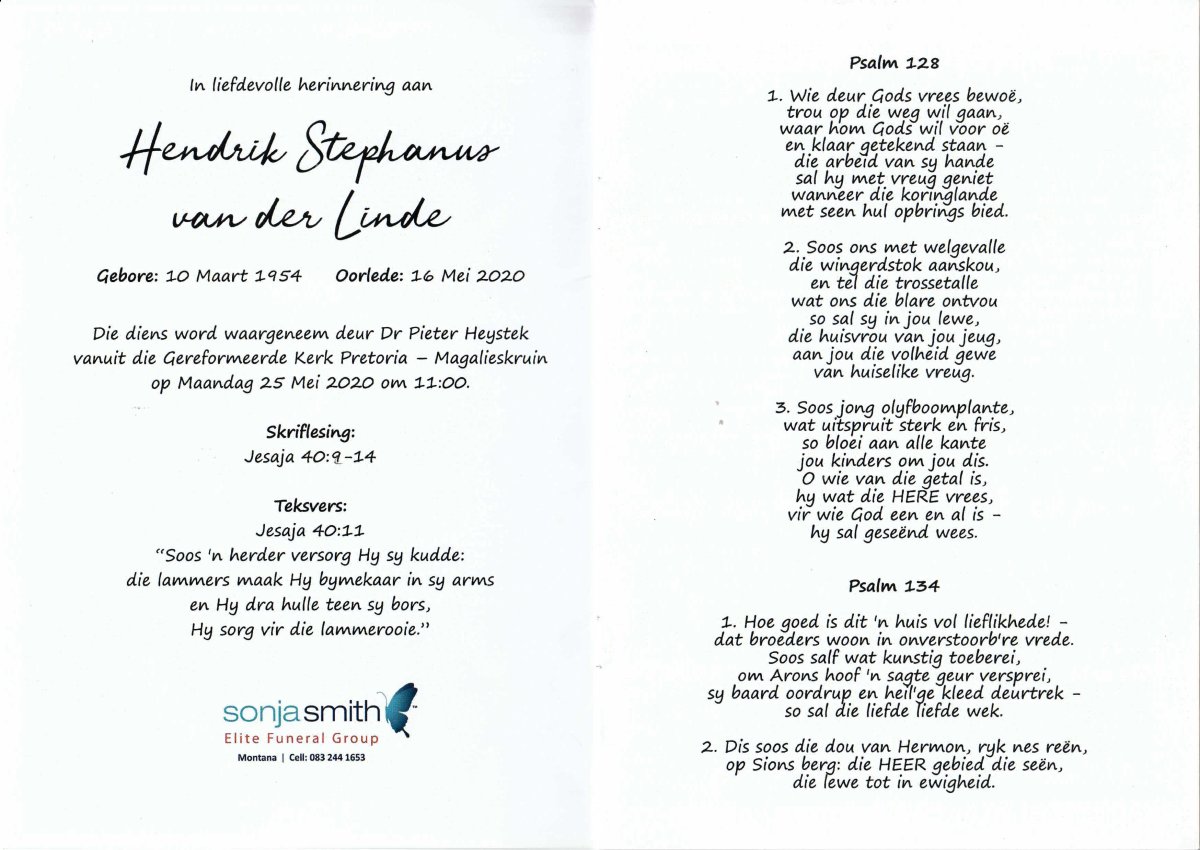 In liefdevolle herinnering aan
Hendrik Stephanus
van der Linde
Gebore: 10 Maart 1954 Oorlede: 16 Mei 2020
Die diens word waargeneem deur Dr Pieter Heystek
vanuit die Gereformeerde Kerk Pretoria – Magalieskruin
op Maandag 25 Mei 2020 om 11:00.
Skriflesing:
Jesaja 40:9-14
Teksvers:
Jesaja 40:11
“Soos 'n herder versorg Hy sy kudde:
die lammers maak Hy bymekaar in sy arms
en Hy dra hulle teen sy bors,
Hy sorg vir die lammerooie.”
sonja smith™
Elite Funeral Group
Montana | Cell: 083 244 1653
Psalm 128
1. Wie deur Gods vrees bewoë,
trou op die weg wil gaan,
waar hom Gods wil voor oë
en klaar getekend staan –
die arbeid van sy hande
sal hy met vreug geniet
wanneer die koringlande
met seen hul opbrings bied.
2. Soos ons met welgevalle
die wingerdstok aanskou,
en tel die trossetalle
wat ons die blare ontvou
so sal sy in jou lewe,
die huisvrou van jou jeug,
aan jou die volheid gewe
van huiselike vreug.
3. Soos jong olyfboomplante,
wat uitspruit sterk en fris,
so bloei aan alle kante
jou kinders om jou dis.
O wie van die getal is,
hy wat die HERE vrees,
vir wie God een en al is –
hy sal geseënd wees.
Psalm 134
1. Hoe goed is dit 'n huis vol lieflikhede! –
dat broeders woon in onverstoorb're vrede.
Soos salf wat kunstig toeberei,
om Arons hoof 'n sagte geur versprei,
sy baard oordrup en heil'ge kleed deurtrek –
so sal die liefde liefde wek.
2. Dis soos die dou van Hermon, ryk nes reën,
op Sions berg: die HEER gebied die seën,
die lewe tot in ewigheid.